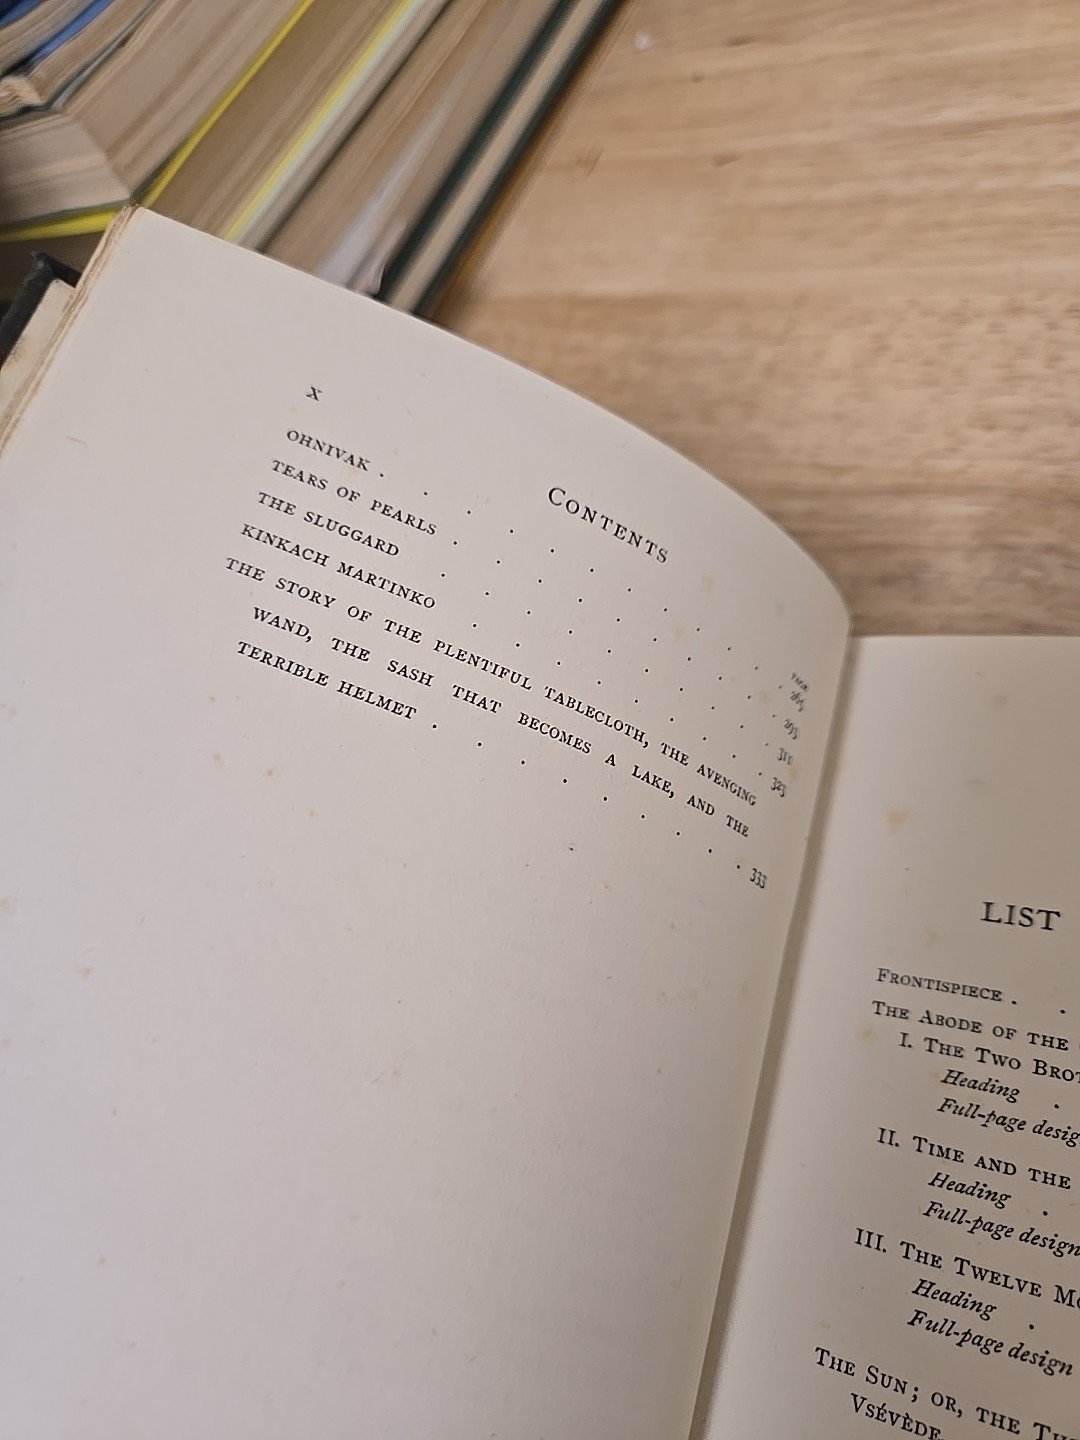 X
CONTENTS
PAGE
OHNIVAK . . . . . . . . . . 265
TEARS OF PEARLS . . . . . . . . 293
THE SLUGGARD . . . . . . . . . 311
KINKACH MARTINKO . . . . . . . . 325
THE STORY OF THE PLENTIFUL TABLECLOTH, THE AVENGING
WAND, THE SASH THAT BECOMES A LAKE, AND THE
TERRIBLE HELMET . . . . . . . . . 333
LIST
FRONTISPIECE . .
THE ABODE OF THE
I. THE TWO BROT
Heading .
Full-page desig
II. TIME AND THE
Heading .
Full-page design
III. THE TWELVE MO
Heading .
Full-page design
THE SUN; OR, THE TH
VSÉVÈDE